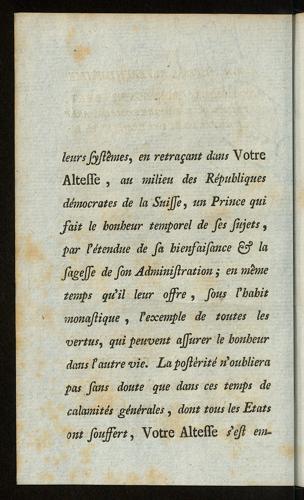 leurs ſyſtêmes, en retraçant dans Votre
Alteſſe, au milieu des Républiques
démocrates de la Suiſſe, un Prince qui
fait le bonheur temporel de ſes ſujets,
par l'étendue de ſa bienfaiſance & la
ſageſſe de ſon Adminiſtration; en même
temps qu'il leur offre, ſous l'habit
monaſtique, l'exemple de toutes les
vertus, qui peuvent aſſurer le bonheur
dans l'autre vie. La poſtérité n'oubliera
pas ſans doute que dans ces temps de
calamités générales, dont tous les Etats
ont ſouffert, Votre Alteſſe s'eſt em-